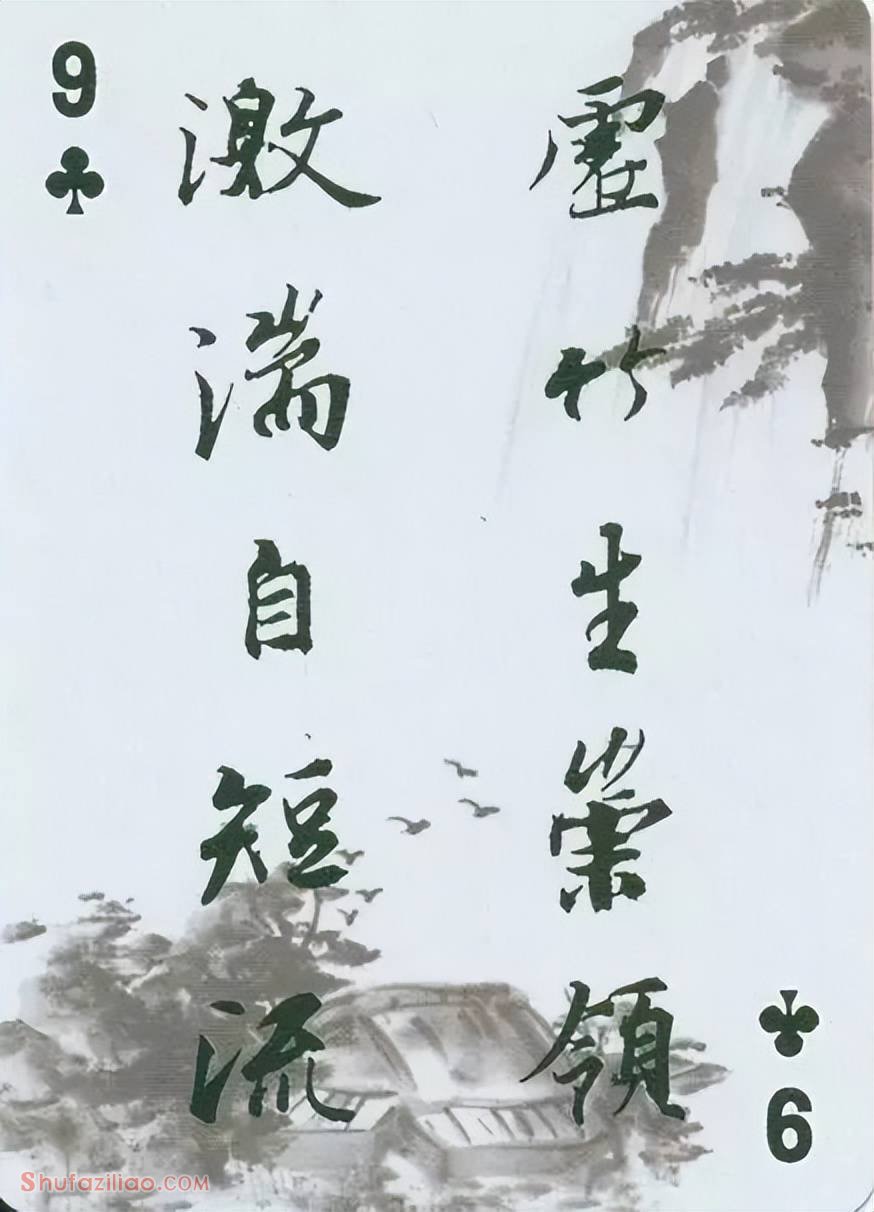 9
虛竹生崇領
激湍自短流
6
Shufaziliao.com